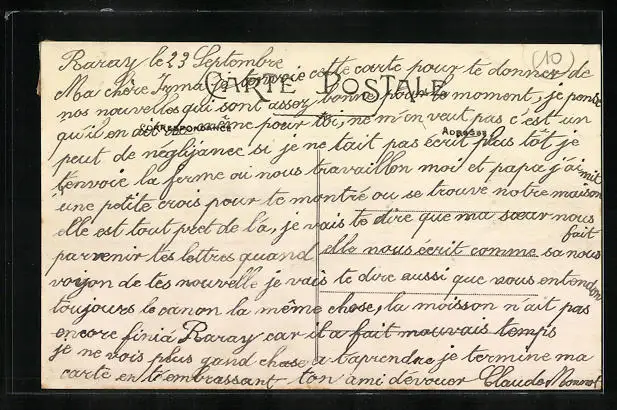 (10)
Raray le 23 Septembre
CARTE POSTALE
Ma chère Irma je t'envoie cette carte pour te donner de
nos nouvelles qui sont assez bonne pour le moment, je pense
CORRESPONDANCE
ADRESSE
qu'il en est de même pour toi, ne m'in veut pas c'est un
peut de néglijance si je ne tait pas écrit plus tôt je
t'envoie la ferme où nous travaillon moi et papa j'ai mit
une petite crois pour te montré ou se trouve notre maison
elle est tout pret de là, je vais te dire que ma sœur nous
fait
parvenir tes lettres quand elle nous écrit comme sa nous
voiyon de tes nouvelle je vais te dire aussi que vous entendon
toujours le canon la même chose, la moisson n'ait pas
encore finia Raray car il a fait mouvais temps
je ne vois plus gand chose a t'aprendre je termine ma
carte en t'embrassant ton ami dévouer Claude